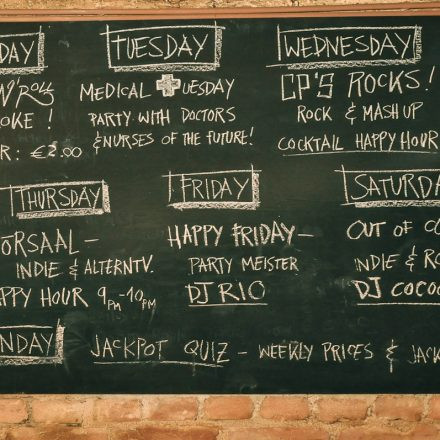 DAY
N'ROLL
OKE !
R: €2.00
TUESDAY
MEDICAL TUESDAY
PARTY WITH DOCTORS
& NURSES OF THE FUTURE!
WEDNESDAY
CP'S ROCKS!
ROCK & MASH UP
COCKTAIL HAPPY HOUR
THURSDAY
ORSAAL –
INDIE & ALTERNTV.
APPY HOUR 9PM-10PM
FRIDAY
HAPPY FRIDAY –
PARTY MEISTER
DJ RIO
SATURDA
OUT OF CO
INDIE & RO
DJ COCO
NDAY
JACKPOT QUIZ – WEEKLY PRICES & JACK